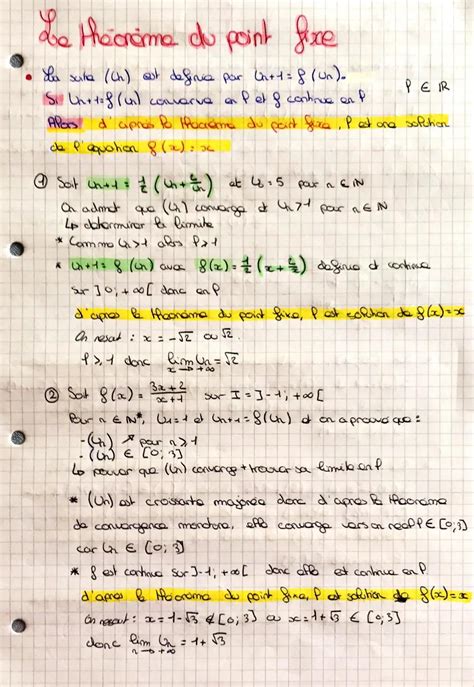 Le théorème du point fixe
• La suite (Un) est définie par Un+1 = f(Un).
Si Un+1 = f(Un) converge en ℓ et f continue en ℓ ℓ ∈ ℝ
Alors d'après le théorème du point fixe, ℓ est une solution
de l'équation f(x) = x
① Soit Un+1 = 1/2 (Un + 2/Un) et U0 = 5 pour n ∈ ℕ
On admet que (Un) converge et Un > 1 pour n ∈ ℕ
↳ déterminer la limite
* Comme Un > 1 alors ℓ ⩾ 1
* Un+1 = f(Un) avec f(x) = 1/2 (x + 2/x) définie et continue
sur ]0; +∞[ donc en ℓ
d'après le théorème du point fixe, ℓ est solution de f(x) = x
On résout : x = -√2 ou √2.
ℓ ⩾ 1 donc lim Un = √2
x → +∞
② Soit f(x) = (3x + 2)/(x + 1) sur I = ]-1; +∞[
Pour n ∈ ℕ*, U1 = 1 et Un+1 = f(Un) et on a prouvé que :
- (Un) ↗ pour n ⩾ 1
- (Un) ∈ [0; 3]
↳ prouver que (Un) converge + trouver sa limite en ℓ
* (Un) est croissante majorée donc d'après le théorème
de convergence monotone, elle converge vers un réel ℓ ∈ [0; 3]
car Un ∈ [0; 3]
* f est continue sur ]-1; +∞[ donc elle est continue en ℓ
d'après le théorème du point fixe, ℓ est solution de f(x) = x
On résout : x = 1 - √3 ∉ [0; 3] ou x = 1 + √3 ∈ [0; 3]
donc lim Un = 1 + √3
n → +∞